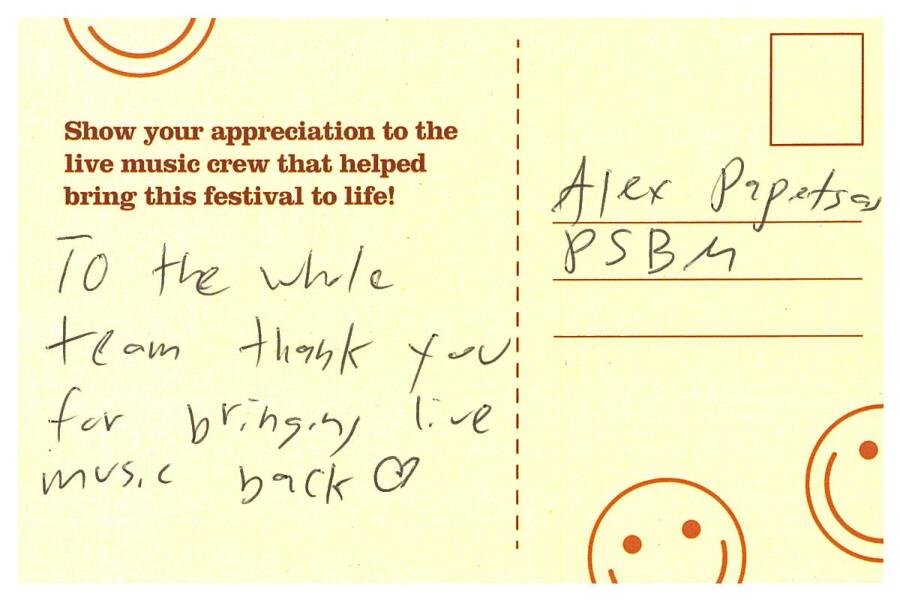 Show your appreciation to the
live music crew that helped
bring this festival to life!
To the whole
team thank you
for bringing live
music back
Alex Papetsas
PSBM